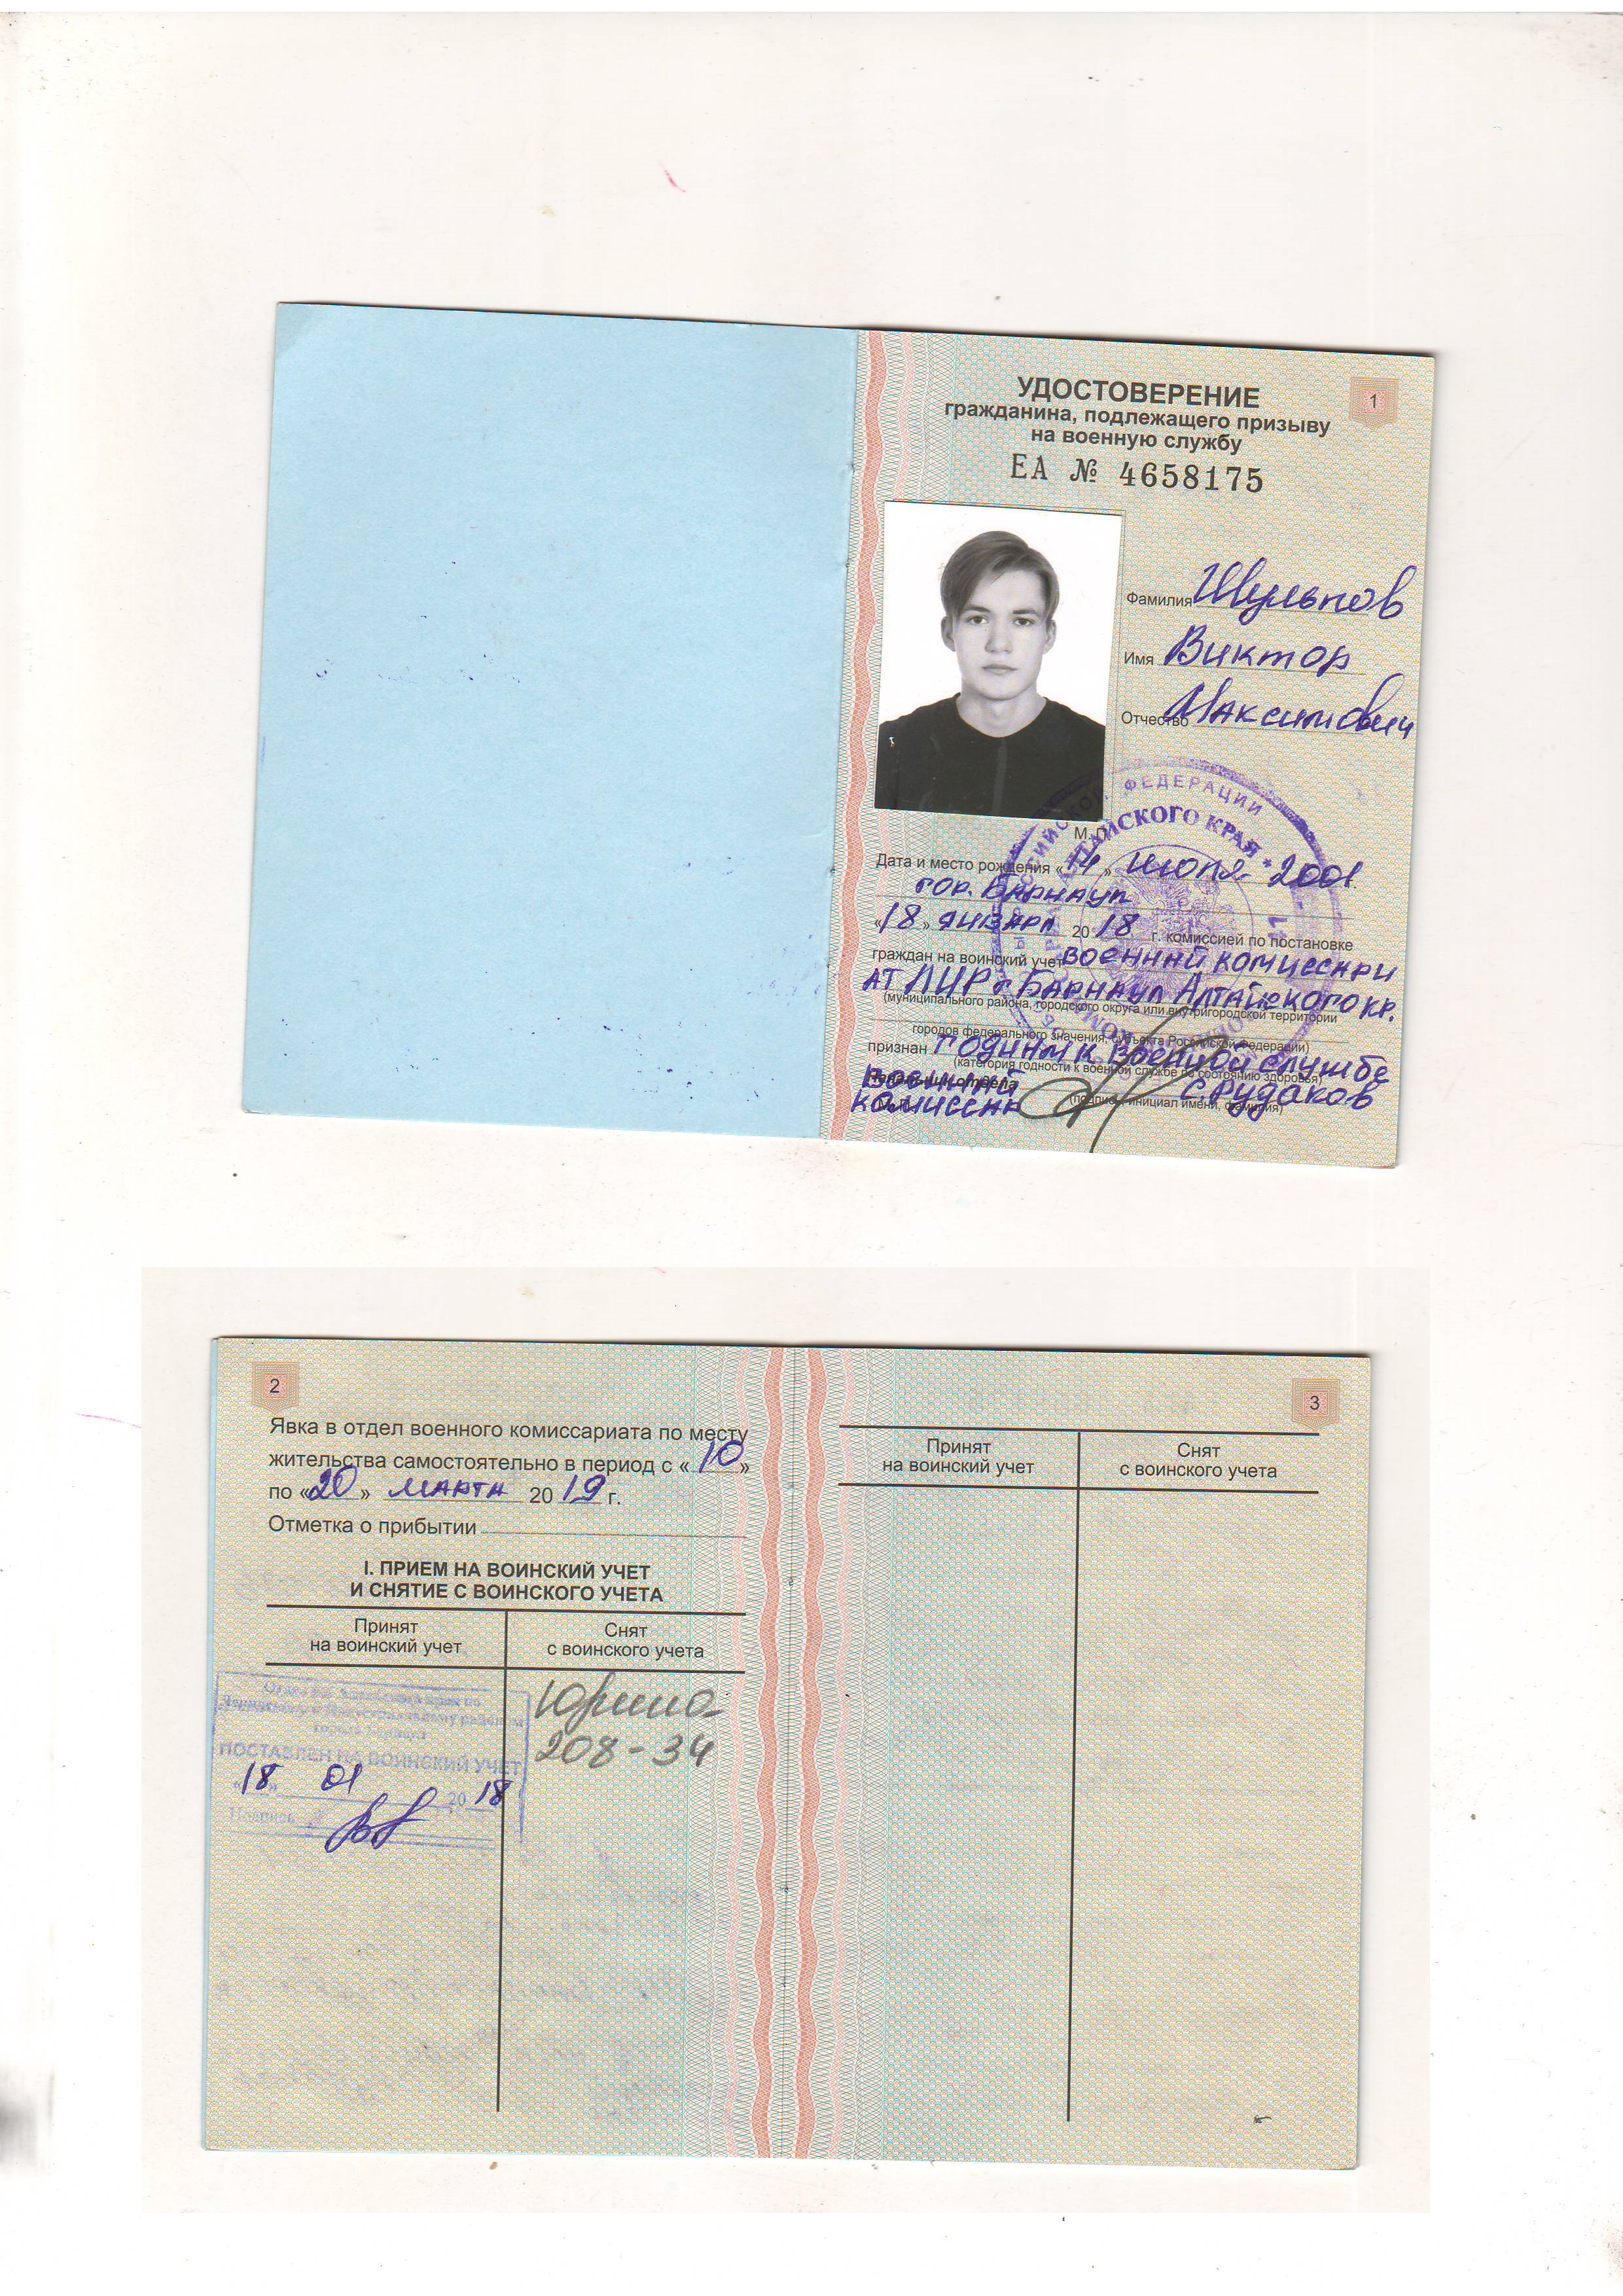 1
УДОСТОВЕРЕНИЕ
гражданина, подлежащего призыву
на военную службу
ЕА № 4658175
Фамилия Шульпов
Имя Виктор
Отчество Максимович
ФЕДЕРАЦИИ
АЛТАЙСКОГО КРАЯ *
М.П.
Дата и место рождения «14» июля 2001
гор. Барнаул
«18» января 2018 г. комиссией по постановке
граждан на воинский учет военный комиссари
ат ЛИР г. Барнаул Алтайского кр.
(муниципального района, городского округа или внутригородской территории
городов федерального значения, субъекта Российской Федерации)
признан годным к военной службе
(категория годности к военной службе по состоянию здоровья)
Военный С. Рудаков
комиссар (подпись, инициал имени, фамилия)
2
Явка в отдел военного комиссариата по месту
жительства самостоятельно в период с «10»
по «20» марта 2019 г.
Отметка о прибытии
I. ПРИЕМ НА ВОИНСКИЙ УЧЕТ
И СНЯТИЕ С ВОИНСКОГО УЧЕТА
Принят
на воинский учет
Снят
с воинского учета
ПОСТАВЛЕН НА ВОИНСКИЙ УЧЕТ
«18» 01 2018
Подпись
208-34
3
Принят
на воинский учет
Снят
с воинского учета